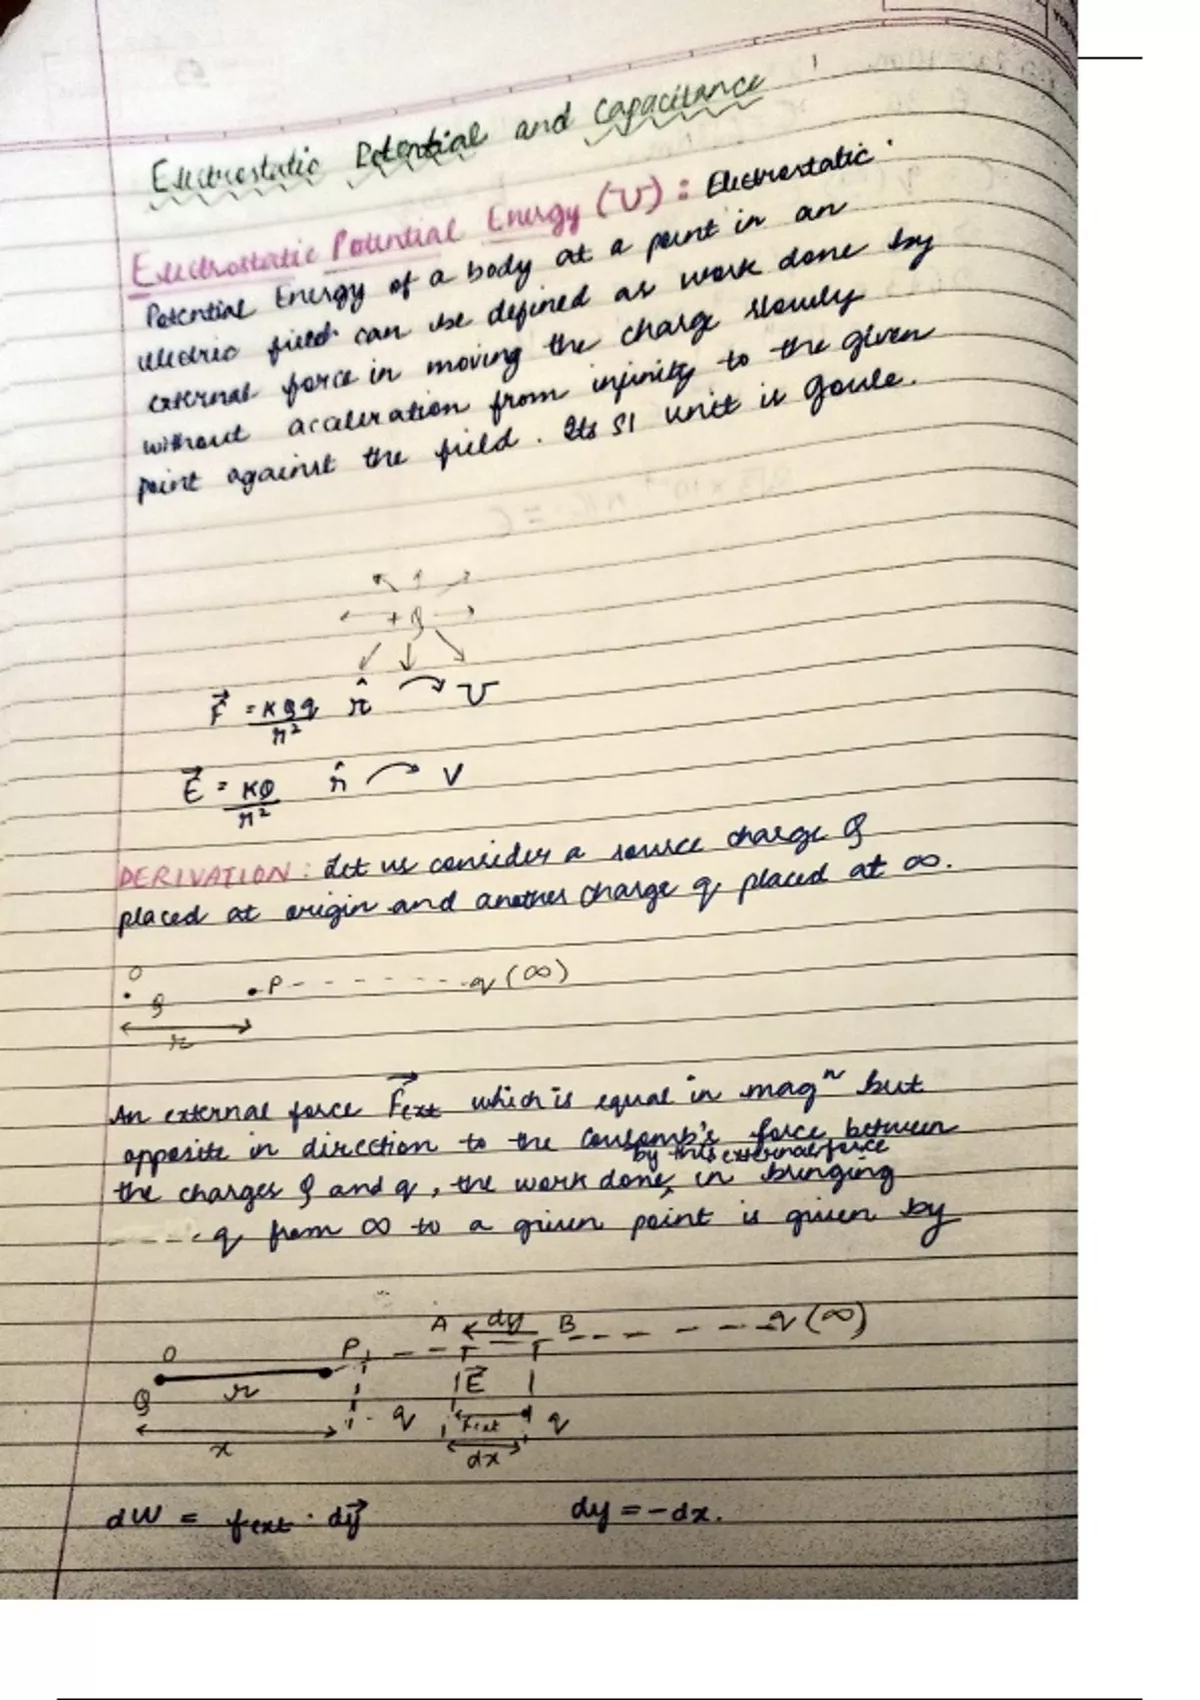 Electrostatic Potential and Capacitance
Electrostatic Potential Energy (U) : Electrostatic
Potential Energy of a body at a point in an
electric field can be defined as work done by
external force in moving the charge slowly
without acaleration from infinity to the given
point against the field. Its SI unit is Joule.
+Q
F⃗ = KQq/r² r̂ ⟶ U
E⃗ = KQ/r² r̂ ⟶ V
DERIVATION : Let us consider a source charge Q
placed at origin and another charge q placed at ∞.
O
Q . P - - - - - - - q (∞)
r
An external force F⃗ext which is equal in magⁿ but
opposite in direction to the Coulomb's force between
by this external force
the charges Q and q, the work done in bringing
q from ∞ to a given point is given by
A dy B q (∞)
O P
Q r E⃗
q Fext q
x dx
dW = Fext · dy⃗ dy = -dx.